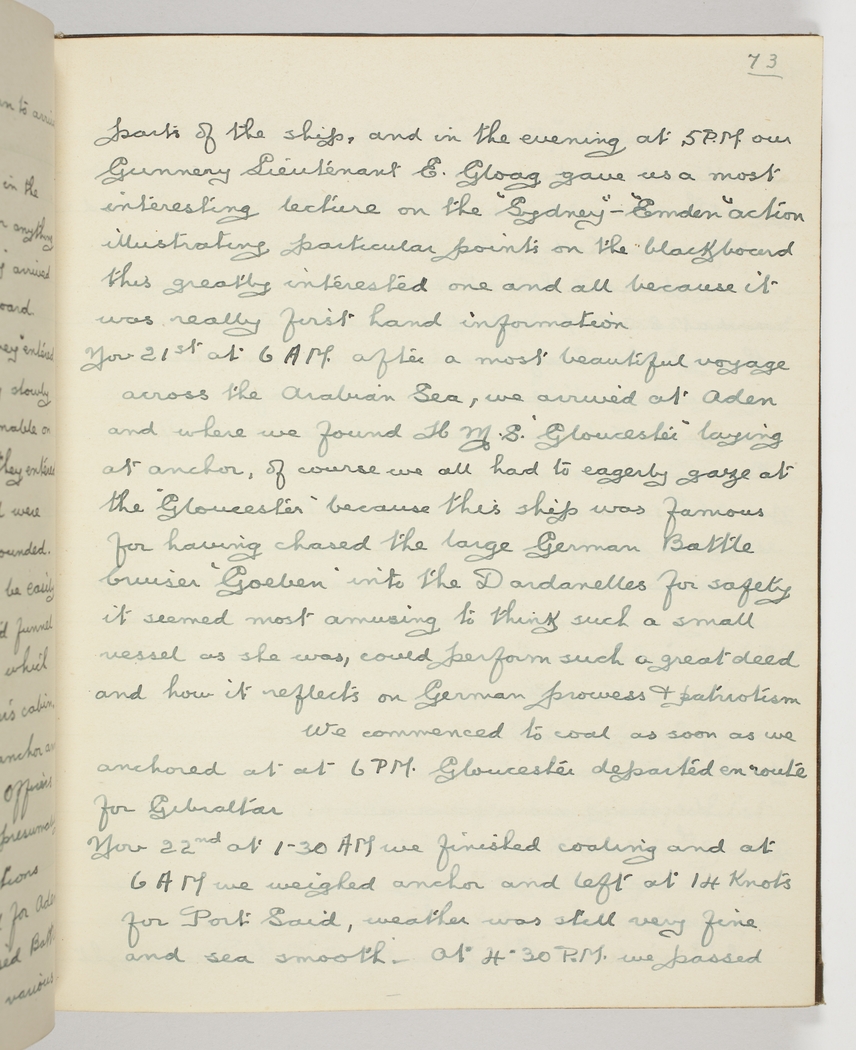 73
parts of the ship, and in the evening at 5 P.M. our
Gunnery Lieutenant E. Gloag gave us a most
interesting lecture on the "Sydney" - "Emden" action
illustrating particular points on the blackboard
this greatly interested one and all because it
was really first hand information
Nov 21st at 6 A.M. after a most beautiful voyage
across the Arabian Sea, we arrived at Aden
and where we found H.M.S. "Gloucester" laying
at anchor, of course we all had to eagerly gaze at
the "Gloucester" because this ship was famous
for having chased the large German Battle
bruiser "Goeben" into the Dardanelles for safety
it seemed most amusing to think such a small
vessel as she was, could perform such a great deed
and how it reflects on German prowess & patriotism
We commenced to coal as soon as we
anchored at at 6 P.M. Gloucester departed en route
for Gibraltar
Nov 22nd at 1-30 AM we finished coaling and at
6 AM we weighed anchor and left at 14 Knots
for Port Said, weather was still very fine
and sea smooth. - At 4-30 P.M. we passed
in the
anything
arrived
entered
slowly
they
were
be easily
funnel
which
cabin
anchor
Officers
for Aden
various